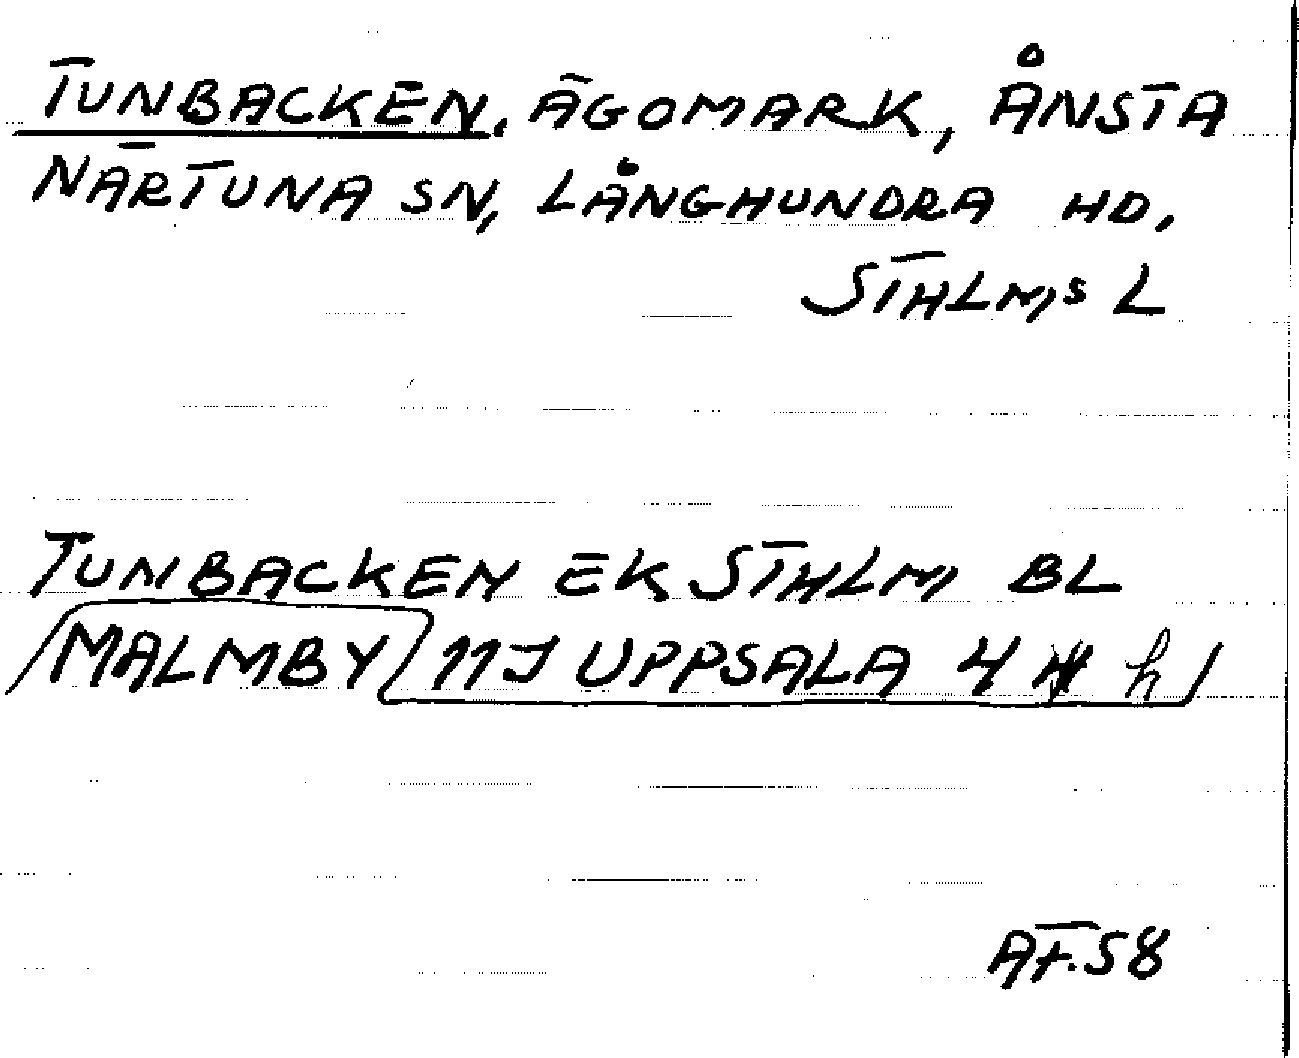 TUNBACKEN, ÄGOMARK, ÅNSTA
NÄRTUNA SN, LÅNGHUNDRA HD,
STHLMS L
TUNBACKEN EK STHLM BL
MALMBY 11J UPPSALA 4 h
AF.58